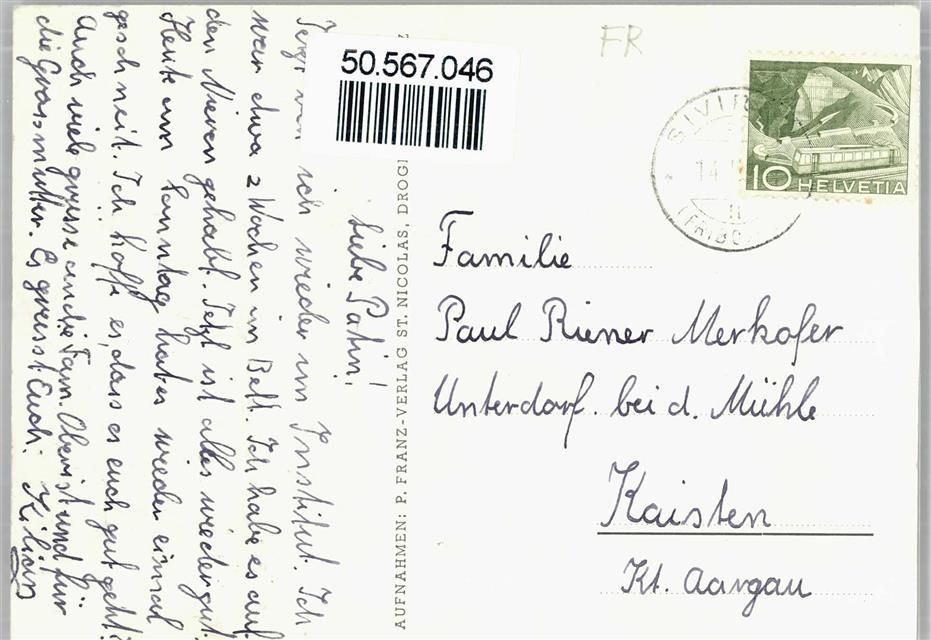 FR
50.567.046
SIVIRI
14.
(FRIBO
10 HELVETIA
Liebe Patin!
ich wieder im Institut. Ich
war etwa 2 Wochen im Bett. Ich habe es auf
den Nieren gehabt. Jetzt ist alles wieder gut.
Heute am Sonntag hat es wieder einmal
geschneit. Ich hoffe es, dass es euch gut geht.
Auch viele grüsse an die Fam. Obrist und für
die Grossmutter. Es grüsst Euch: Kilian
AUFNAHMEN: P. FRANZ-VERLAG ST. NICOLAS, DROG
Familie
Paul Riener Merkofer
Unterdorf. bei d. Mühle
Kaisten
Kt. Aargau